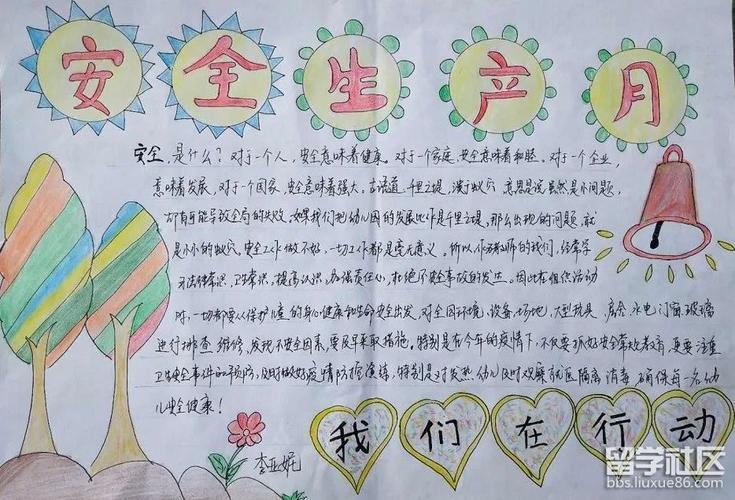 安全生产月
安全,是什么?对于一个人,安全意味着健康。对于一个家庭,安全意味着和睦。对于一个企业,
意味着发展。对于一个国家,安全意味着强大。古语道:千里之堤,溃于蚁穴 意思是说虽然是小问题,
却有可能导致全局的失败。如果我们把幼儿园的发展比作是千里之堤,那么出现的问题就
是小小的蚁穴。安全工作做不好,一切工作都是毫无意义。所以作为教师的我们,经常学
习法律常识,卫生常识,提高认识,加强责任心,杜绝不安全事故的发生。因此在组织活动
时,一切都要从保护儿童的身心健康和生命安全出发,对全园环境、设备、场地、大型玩具、房舍、水电门窗、玻璃
进行排查、维修,发现不安全因素,要及早采取措施。特别是在今年的疫情下,不仅要抓好安全常规教育,更要注重
卫生安全事件的预防,及时做好疫情防控演练,特别是对发热幼儿及时观察就医隔离消毒 确保每一名幼
儿安全健康!
李亚妮
我们在行动
留学社区
bbs.liuxue86.com